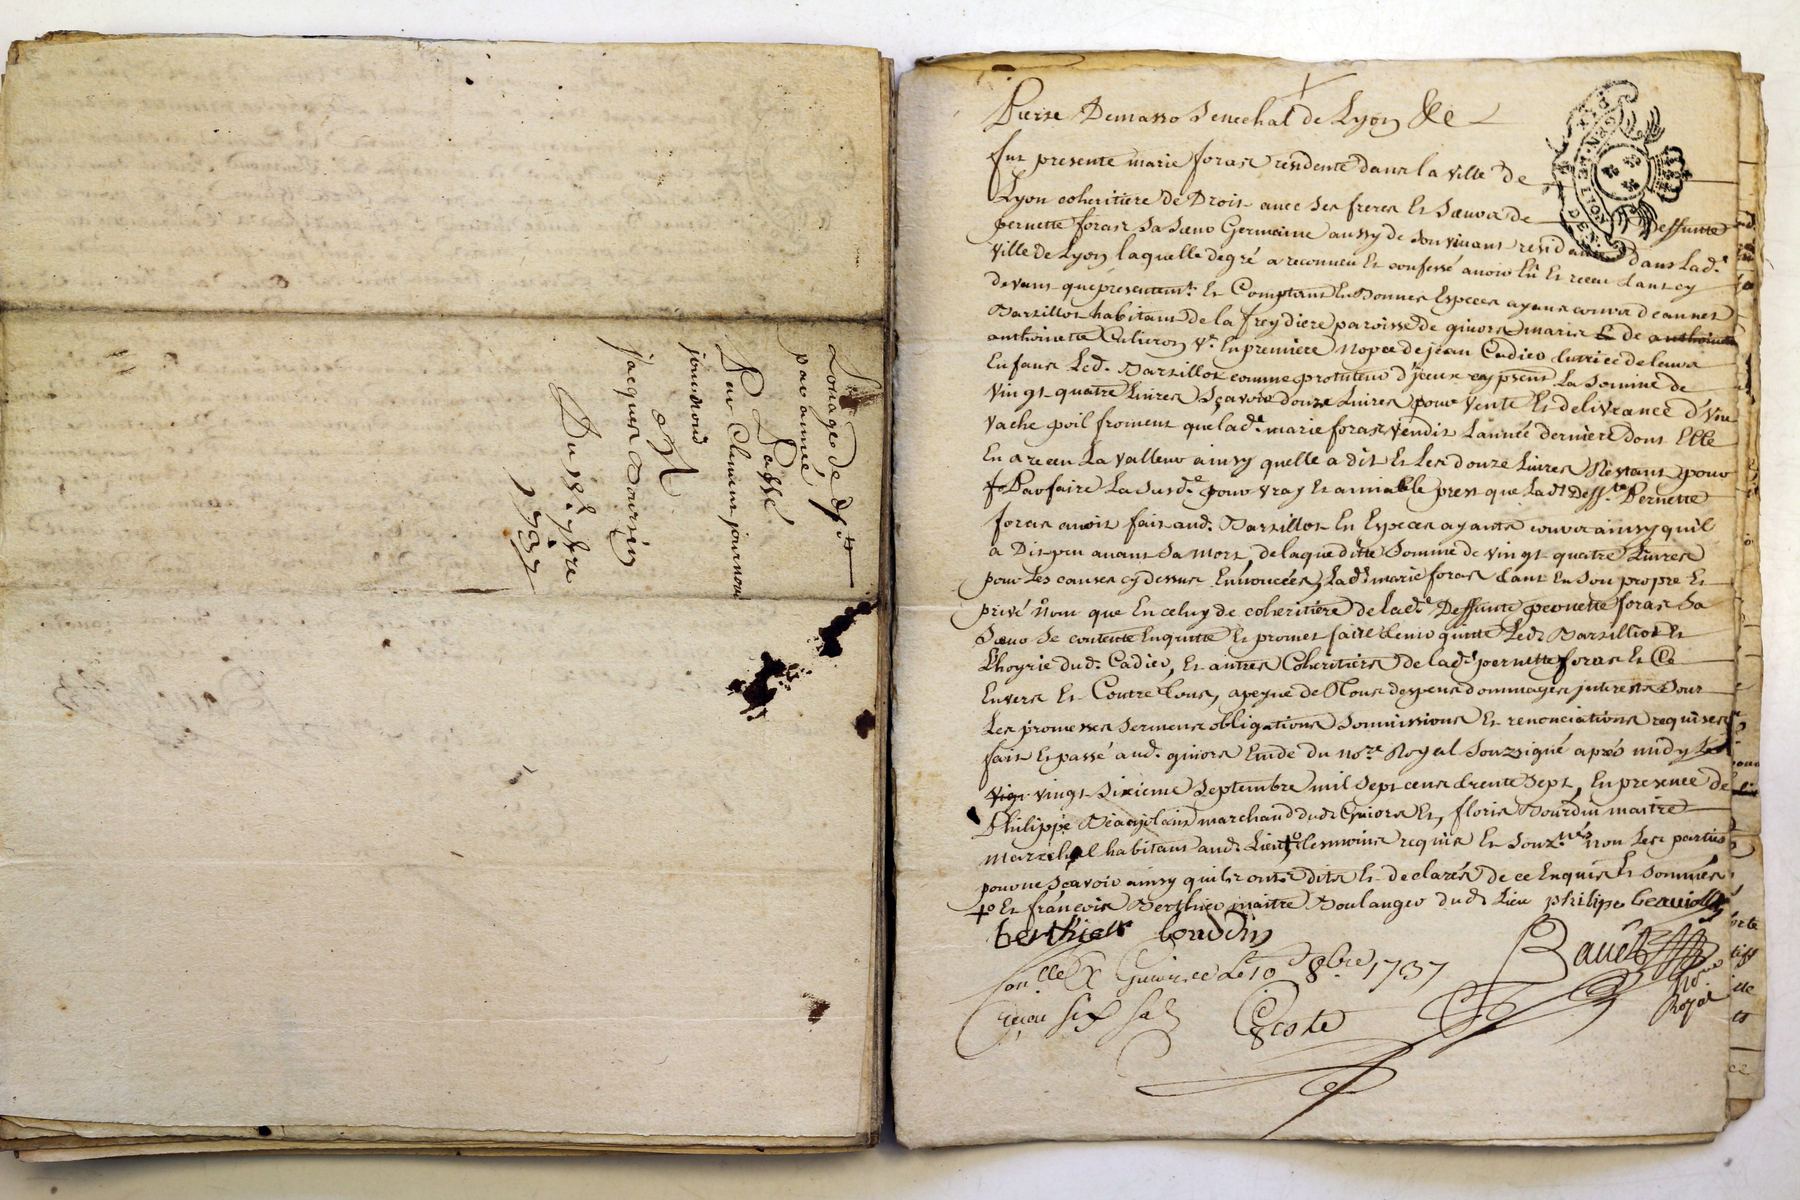 Louage de 9#
par année
Passé
Par Clement journoux
journoud
A
jacques
Du 18e 7bre
1737
Pierre Demasso Senechal de Lyon &c
fut presente marie foras residente dans la ville de
Lyon coheritiere de Droit avec ses freres Et Sœurs de deffunte
pernette foras sa sœur Germaine aussy de son vivant residante dans lad.e
ville de Lyon laquelle de gré a reconneu Et confessé avoir Eu Et receu tant cy
devant que presentemt. Et Comptant En Bonnes Especes ayans cours d'eannet
Barsillot habitant de la freydiere paroisse de givors maris de
anthoinette V.e En premiere Nopce de jean Cadier tutrice de leurs
Enfans Led. Barsillot comme protuteur d'jceux La Somme de
vingt quatre Livres Sçavoir douze Livres pour vente Et delivrance d'Une
vache poil froment que lad.e marie foras vendit L'année derniere dont Elle
En a receu La valleur ainsy quelle a dit Et Les douze Livres Restant pour
Parfaire La Susd.e pour vray Et amiable prest que lad.e Deff.te Pernette
foras avoit fait aud. Barsillot En Especes ayants cours ainsy quil
a Dit peu avant Sa mort, de laquelle ditte Somme de vingt quatre Livres
pour Les causes cy dessus Enoncées, Lad.e marie foras tant En Son propre Et
privé Nom que En celuy de coheritiere de lad.e Deffunte pernette foras Sa
Sœur Se contente En quitte Et promet faire tenir quitte Led. Barsilliot Et
L'hoyrie dud. Cadier, Et autres Coheritiers de lad.e pernette foras Et Ce
Envers Et Contre tous, a peyne de Tous despens dommages jnterests Sour
Les promesses Sermens obligations Soumissions Et renonciations requises
fait Et passé aud. givors Etude du no.re Royal Souzsigné après midy Le
vingt Sixieme Septembre mil Sept cens trente Sept, En presence de
Philippe Beaujolais marchand dud. Givors Et, floris Bourdin maitre
marechal habitant aud. Lieu temoins requis Et Souz.nés non Les parties
pour ne Sçavoir ainsy quils ont dits Et declarés de ce Enquis Et Sommés
+o Et françois Berthier maitre Boulanger dud. Lieu philipe beaujolais
berthier bourdin
Con.lle A Givors ce Le 10 8bre 1737 Bauet No.re
Royal
Reçeu six sols